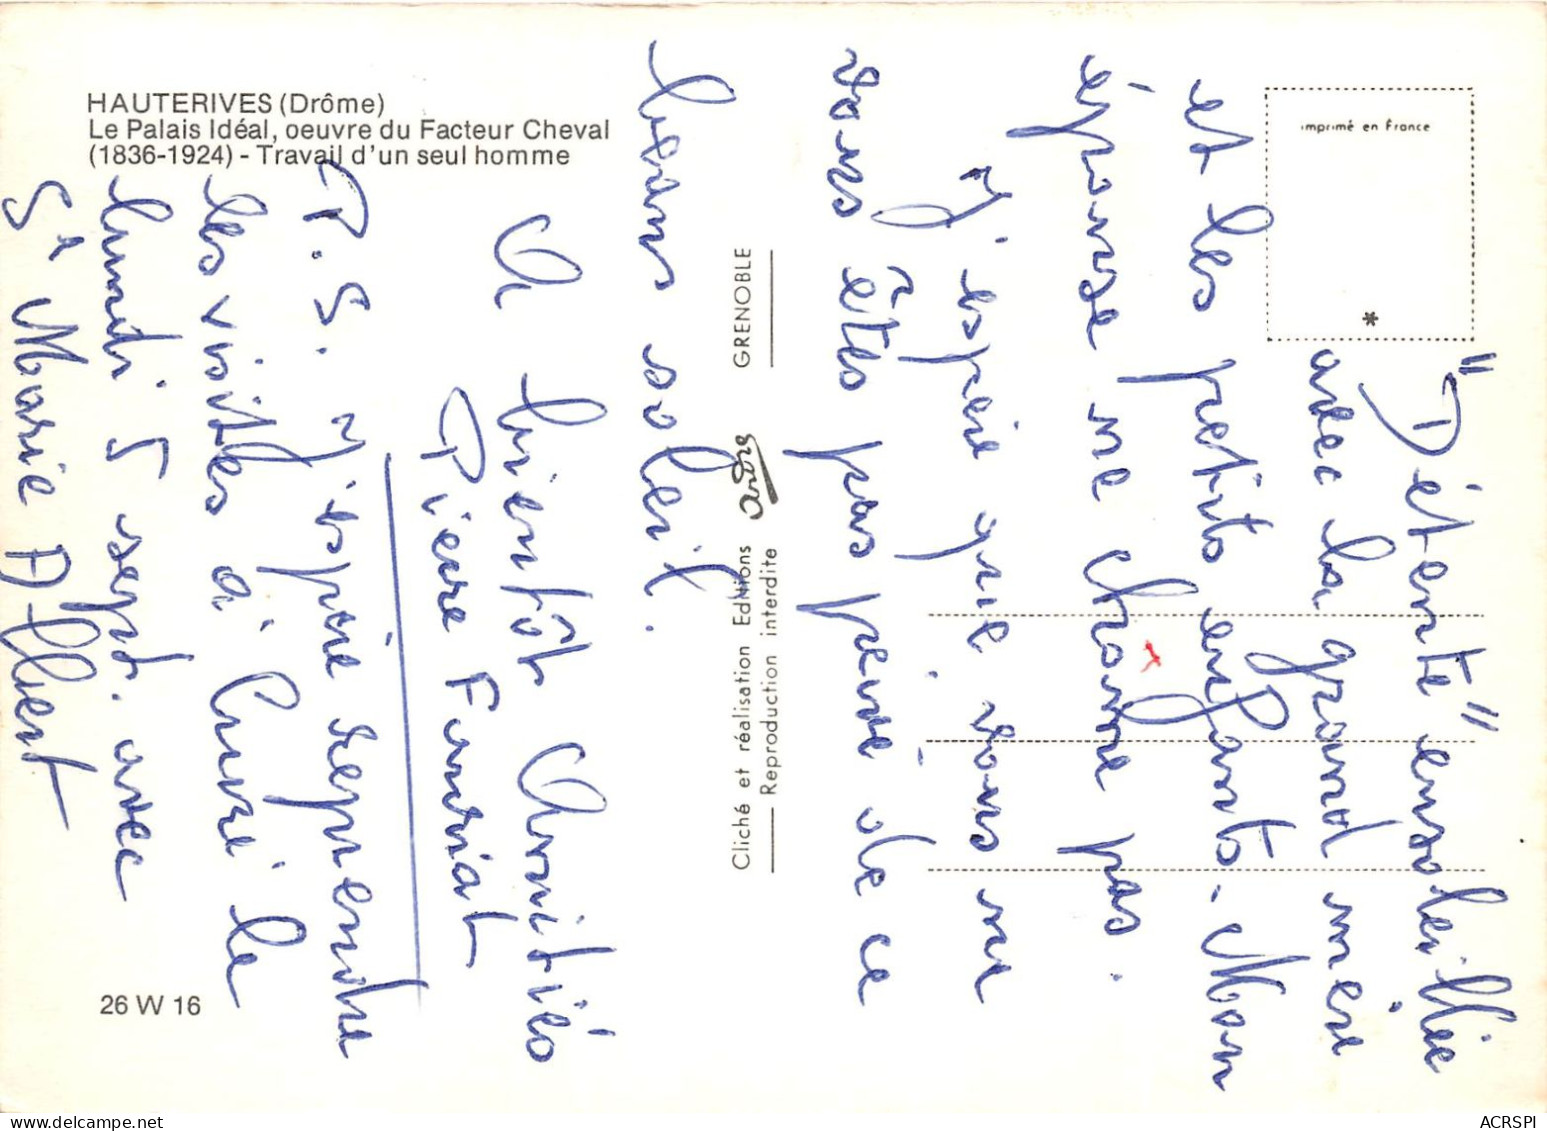 HAUTERIVES (Drôme)
Le Palais Idéal, oeuvre du Facteur Cheval
(1836-1924) - Travail d'un seul homme
imprimé en France
*
"Détente" ensoleillée
avec la grand mère
et les petits enfants. Mon
épouse ne chôme pas.
J'espère que vous ne
vous êtes pas privé de ce
beau soleil.
A bientôt Amitiés
Pierre Fauriat
P.S. J'espère reprendre
les visites à Cusse le
lundi 5 sept. avec
Sr Marie Albert
Cliché et réalisation Editions André GRENOBLE
Reproduction interdite
26 W 16
ACRSPI